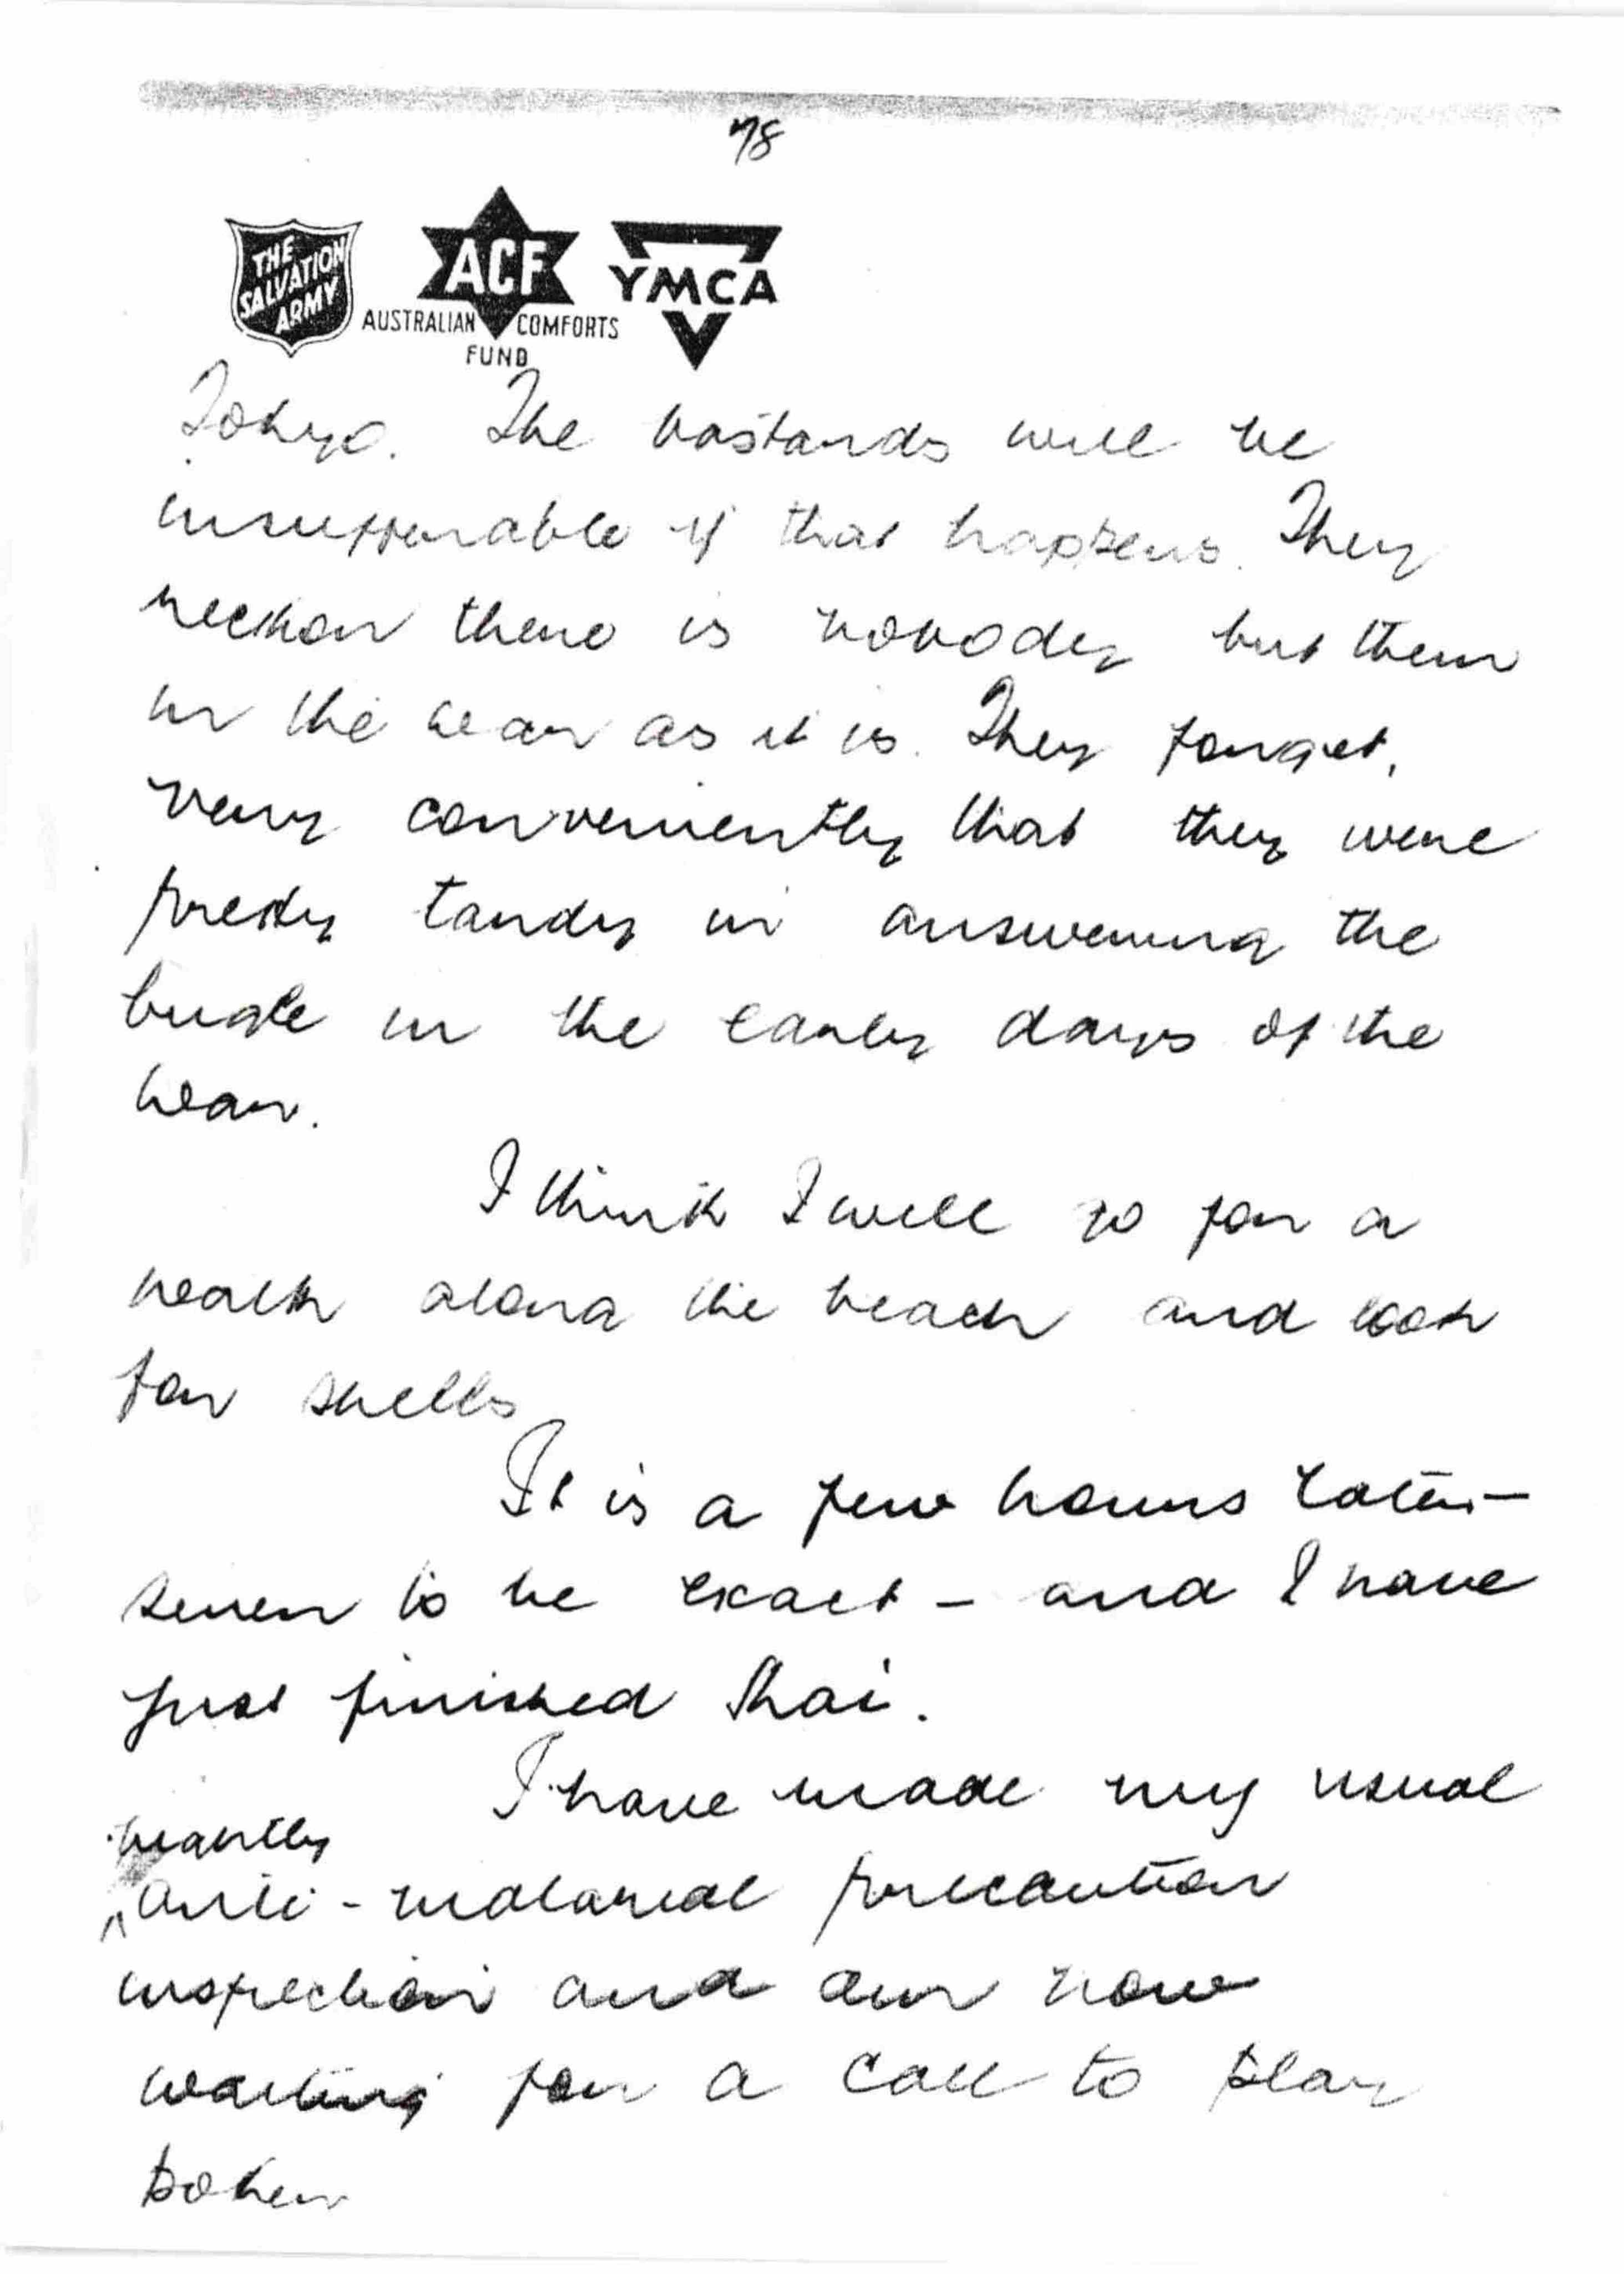 78
THE SALVATION ARMY
ACF
AUSTRALIAN COMFORTS FUND
YMCA
Tokyo. The bastards will be
insufferable if that happens. They
reckon there is nobody but them
in the war as it is. They forget,
very conveniently that they were
pretty tardy in answering the
bugle in the early days of the
war.
I think I will go for a
walk along the beach and look
for shells
It is a few hours later –
seven to be exact – and I have
just finished Thai.
I have made my usual
nightly
anti-malarial precaution
inspection and am now
waiting for a call to play
poker